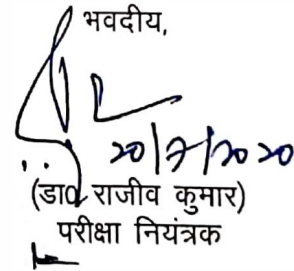 भवदीय,
20/7/2020
(डा0 राजीव कुमार)
परीक्षा नियंत्रक